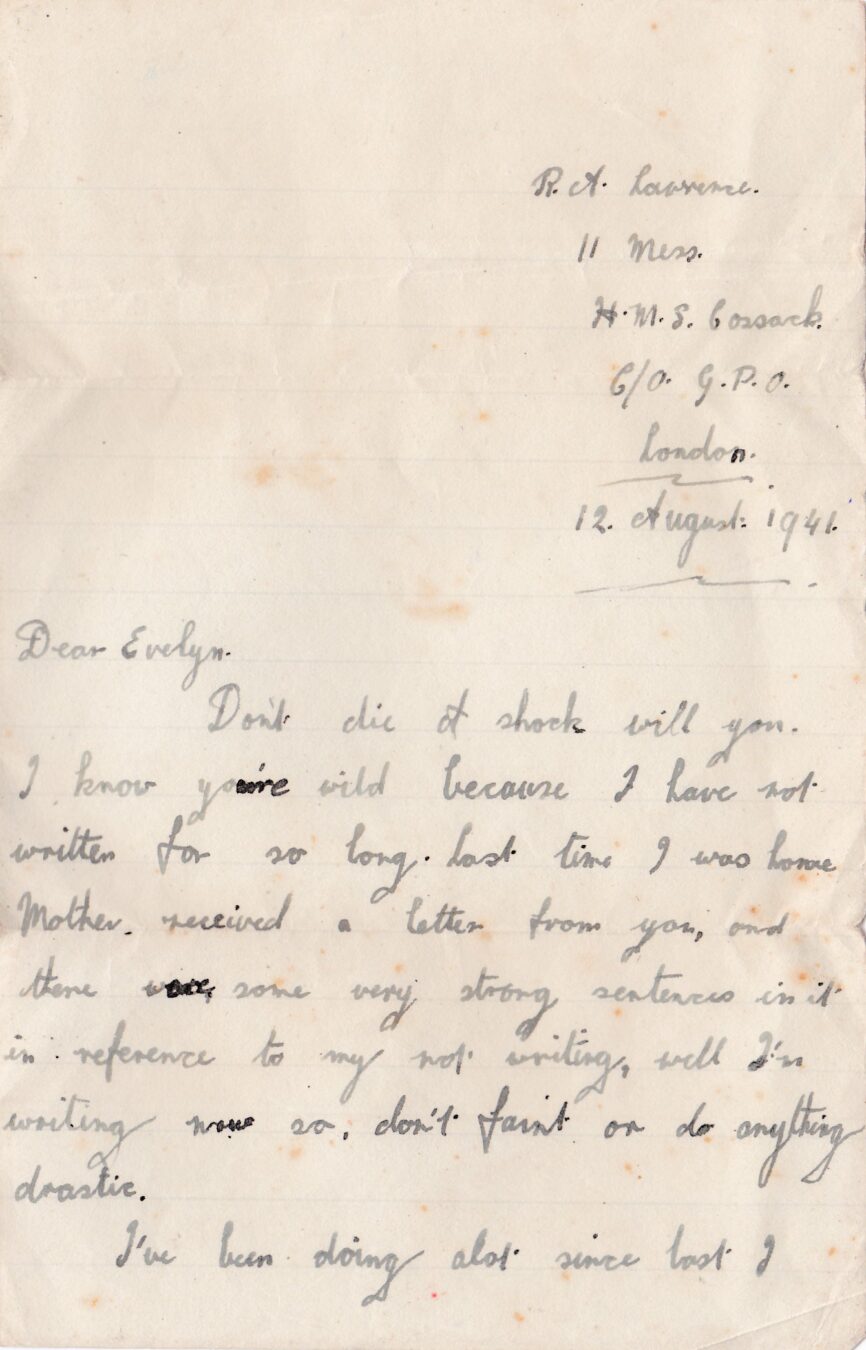 R. A. Lawrence.
11 Mess.
H.M.S. Cossack.
C/O. G.P.O.
London.
12. August. 1941.
Dear Evelyn.
Don't die of shock will you.
I know you're wild because I have not
written for so long. Last time I was home
Mother. received a letter from you, and
there were, some very strong sentences in it
in reference to my not writing, well I'm
writing now so, don't faint or do anything
drastic.
I've been doing alot since last I